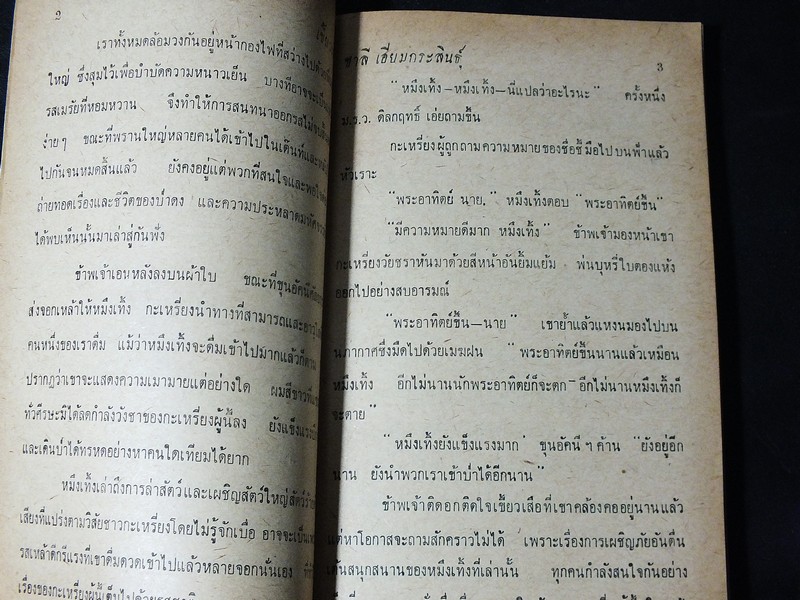 2
เราทั้งหมดล้อมวงกันอยู่หน้ากองไฟที่สว่างไป
ใหญ่ ซึ่งสุมไว้เพื่อบำบัดความหนาวเย็น บางทีอาจจะเป็น
รสเมรัยที่หอมหวาน จึงทำให้การสนทนาออกรสไม่
ง่ายๆ ขณะที่พรานใหญ่หลายคนได้เข้าไปในเต็นท์และ
ไปกันจนหมดสิ้นแล้ว ยังคงอยู่แต่พวกที่สนใจและพอใจ
ถ่ายทอดเรื่องและชีวิตของป่าดง และความประหลาด
ได้พบเห็นนั้นมาเล่าสู่กันฟัง
ข้าพเจ้าเอนหลังลงบนผ้าใบ ขณะที่ขุนอัคนี
ส่งจอกเหล้าให้หมึงเท้ง กะเหรี่ยงนำทางที่สามารถและ
คนหนึ่งของเราดื่ม แม้ว่าหมึงเท้งจะดื่มเข้าไปมากแล้วก็ตาม
ปรากฏว่าเขาจะแสดงความเมามายแต่อย่างใด ผมสีขาวที่
ทั่วศีรษะมิได้ลดกำลังวังชาของกะเหรี่ยงผู้นี้ลง ยังแข็งแรง
และเดินป่าได้ทรหดอย่างหาคนใดเทียมได้ยาก
หมึงเท้งเล่าถึงการล่าสัตว์และเผชิญสัตว์ใหญ่สัตว์
เสียงที่แปร่งตามวิสัยชาวกะเหรี่ยงโดยไม่รู้จักเบื่อ อาจจะเป็น
รสเหล้าดีกรีแรงที่เขาดื่มดวดเข้าไปแล้วหลายจอกนั่นเอง
เรื่องของกะเหรี่ยงผู้นี้เต็มไปด้วย
ชาลี เอี่ยมกระสินธุ์
3
"หมึงเท้ง—หมึงเท้ง—นี่แปลว่าอะไรนะ" ครั้งหนึ่ง
ม.ร.ว. ดิลกฤทธิ์ เอ่ยถามขึ้น
กะเหรี่ยงผู้ถูกถามความหมายของชื่อชี้มือไปบนฟ้าแล้ว
หัวเราะ
"พระอาทิตย์ นาย." หมึงเท้งตอบ "พระอาทิตย์ขึ้น"
"มีความหมายดีมาก หมึงเท้ง" ข้าพเจ้ามองหน้าเขา
กะเหรี่ยงวัยชราหันมาด้วยสีหน้าอันยิ้มแย้ม พ่นบุหรี่ใบตองแห้ง
ออกไปอย่างสบอารมณ์
"พระอาทิตย์ขึ้น—นาย" เขาย้ำแล้วแหงนมองไปบน
นภากาศซึ่งมืดไปด้วยเมฆฝน "พระอาทิตย์ขึ้นนานแล้วเหมือน
หมึงเท้ง อีกไม่นานนักพระอาทิตย์ก็จะตก—อีกไม่นานหมึงเท้งก็
จะตาย"
"หมึงเท้งยังแข็งแรงมาก" ขุนอัคนี ฯ ค้าน "ยังอยู่อีก
นาน ยังนำพวกเราเข้าป่าได้อีกนาน"
ข้าพเจ้าติดอกติดใจเขี้ยวเสือที่เขาคล้องคออยู่นานแล้ว
แต่หาโอกาสจะถามสักคราวไม่ได้ เพราะเรื่องการเผชิญภัยอันตื่น
เต้นสนุกสนานของหมึงเท้งที่เล่านั้น ทุกคนกำลังสนใจกันอย่าง